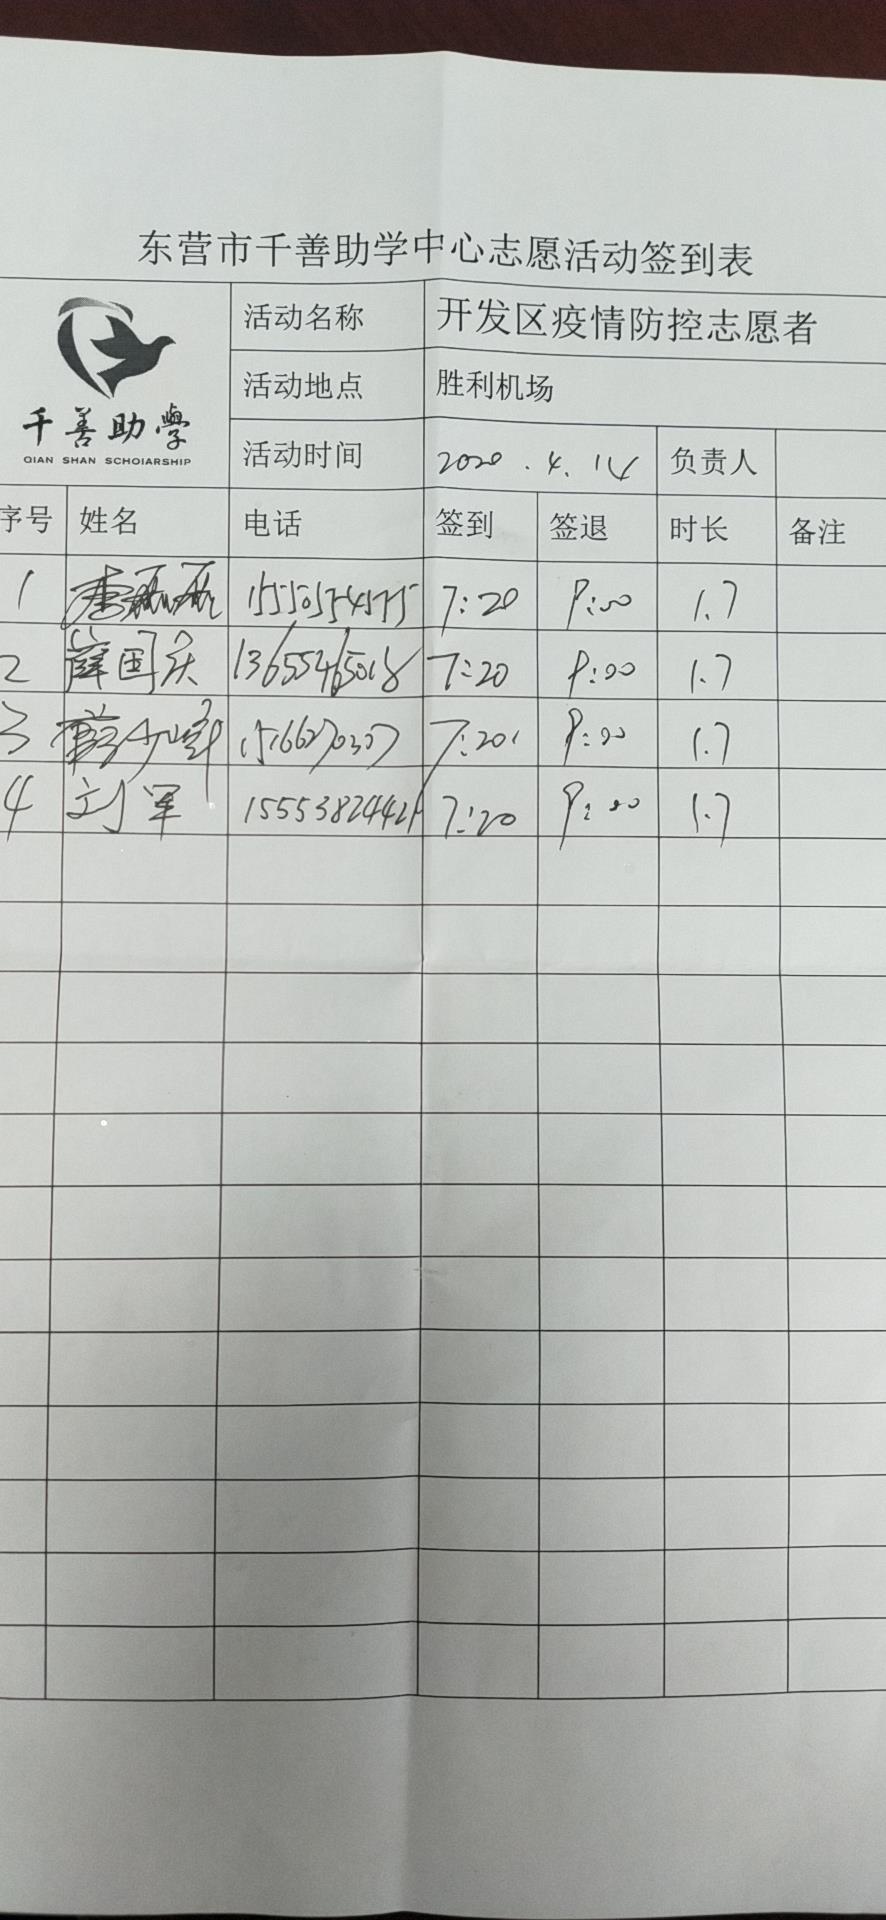 东营市千善助学中心志愿活动签到表
千善助學
QIAN SHAN SCHOIARSHIP
活动名称 开发区疫情防控志愿者
活动地点 胜利机场
活动时间 2020.4.14 负责人
序号 姓名 电话 签到 签退 时长 备注
1 李磊磊 15550554575 7:20 9:00 1.7
2 薛国庆 13655465018 7:20 9:00 1.7
3 7:20 9:00 1.7
4 刘军 15553824421 7:20 9:00 1.7